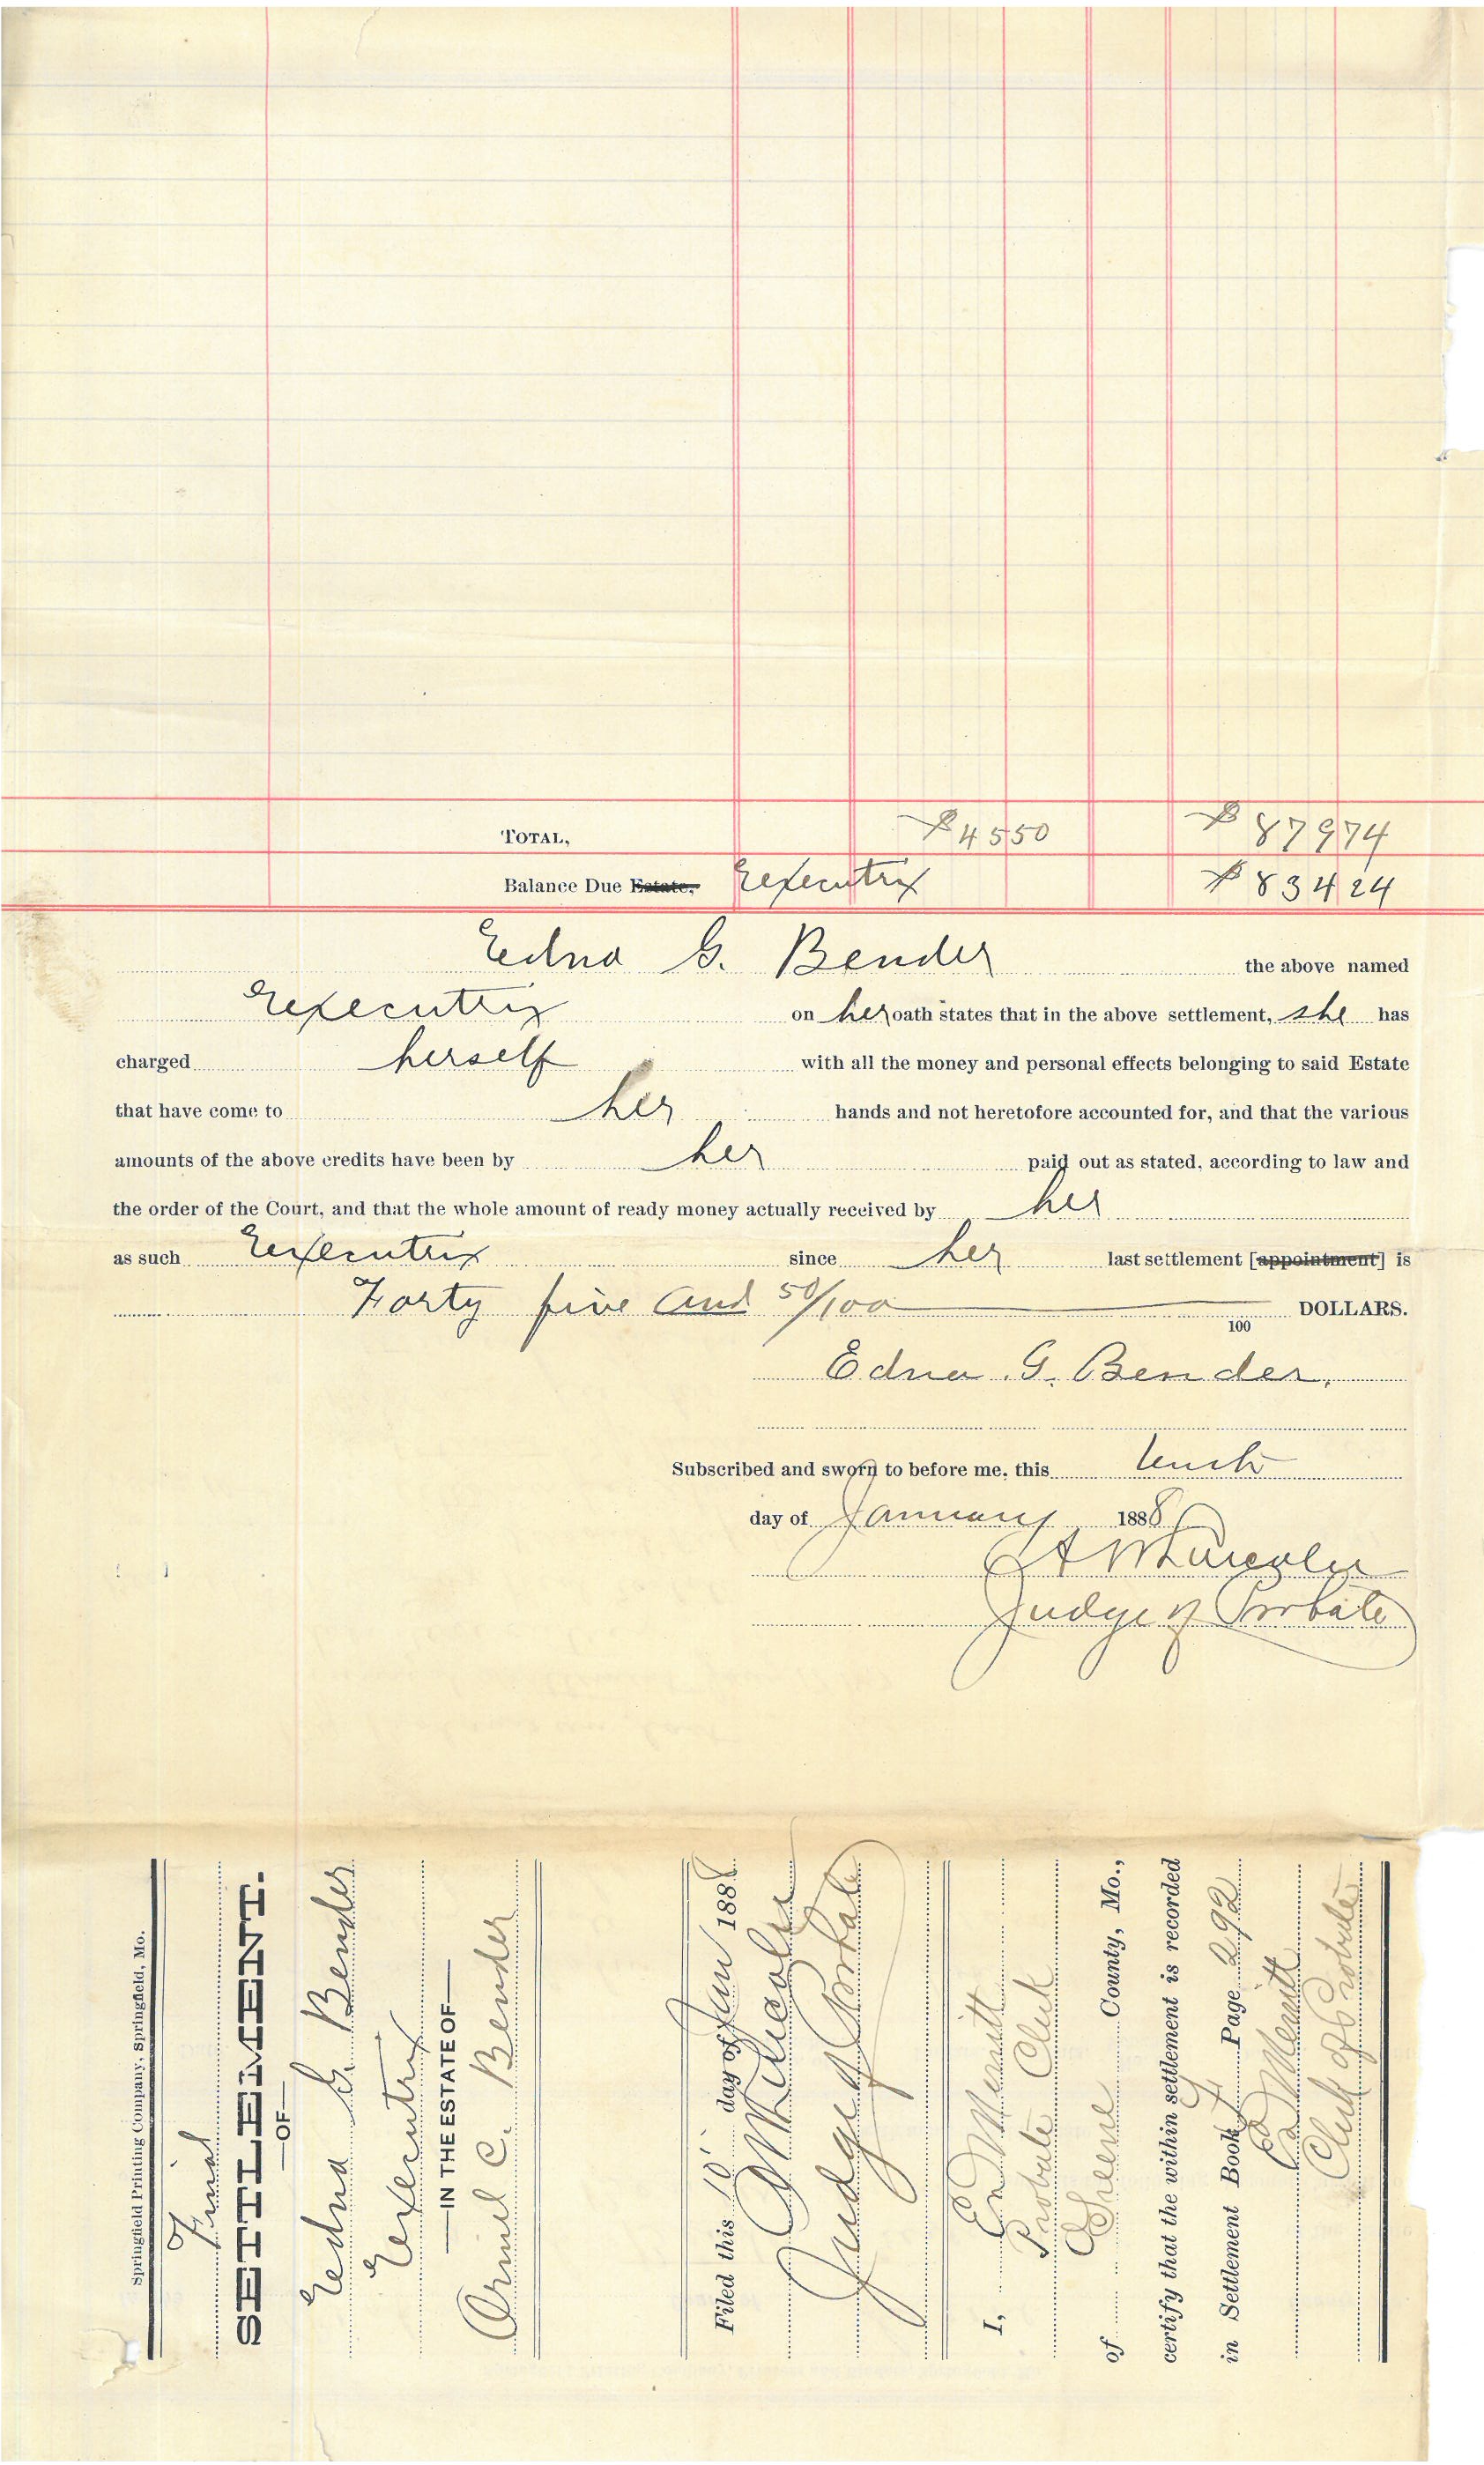 TOTAL, $45 50 $879 74
Balance Due Estate, Executrix $834 24
Edna G. Bender the above named
Executrix on her oath states that in the above settlement, she has
charged herself with all the money and personal effects belonging to said Estate
that have come to her hands and not heretofore accounted for, and that the various
amounts of the above credits have been by her paid out as stated, according to law and
the order of the Court, and that the whole amount of ready money actually received by her
as such Executrix since her last settlement [appointment] is
Forty five and 50/100 100 DOLLARS.
Edna G. Bender,
Subscribed and sworn to before me, this tenth
day of January 1888
Judge of Probate
Springfield Printing Company, Springfield, Mo.
Final
SETTLEMENT.
—OF—
Edna G. Bender
Executrix
—IN THE ESTATE OF—
C. Bender
Filed this 10 day of Jan 1888
Judge of Probate
I, Merritt
Probate Clerk
of Greene County, Mo.,
certify that the within settlement is recorded
in Settlement Book Page 292
Merritt
Clerk of Probate